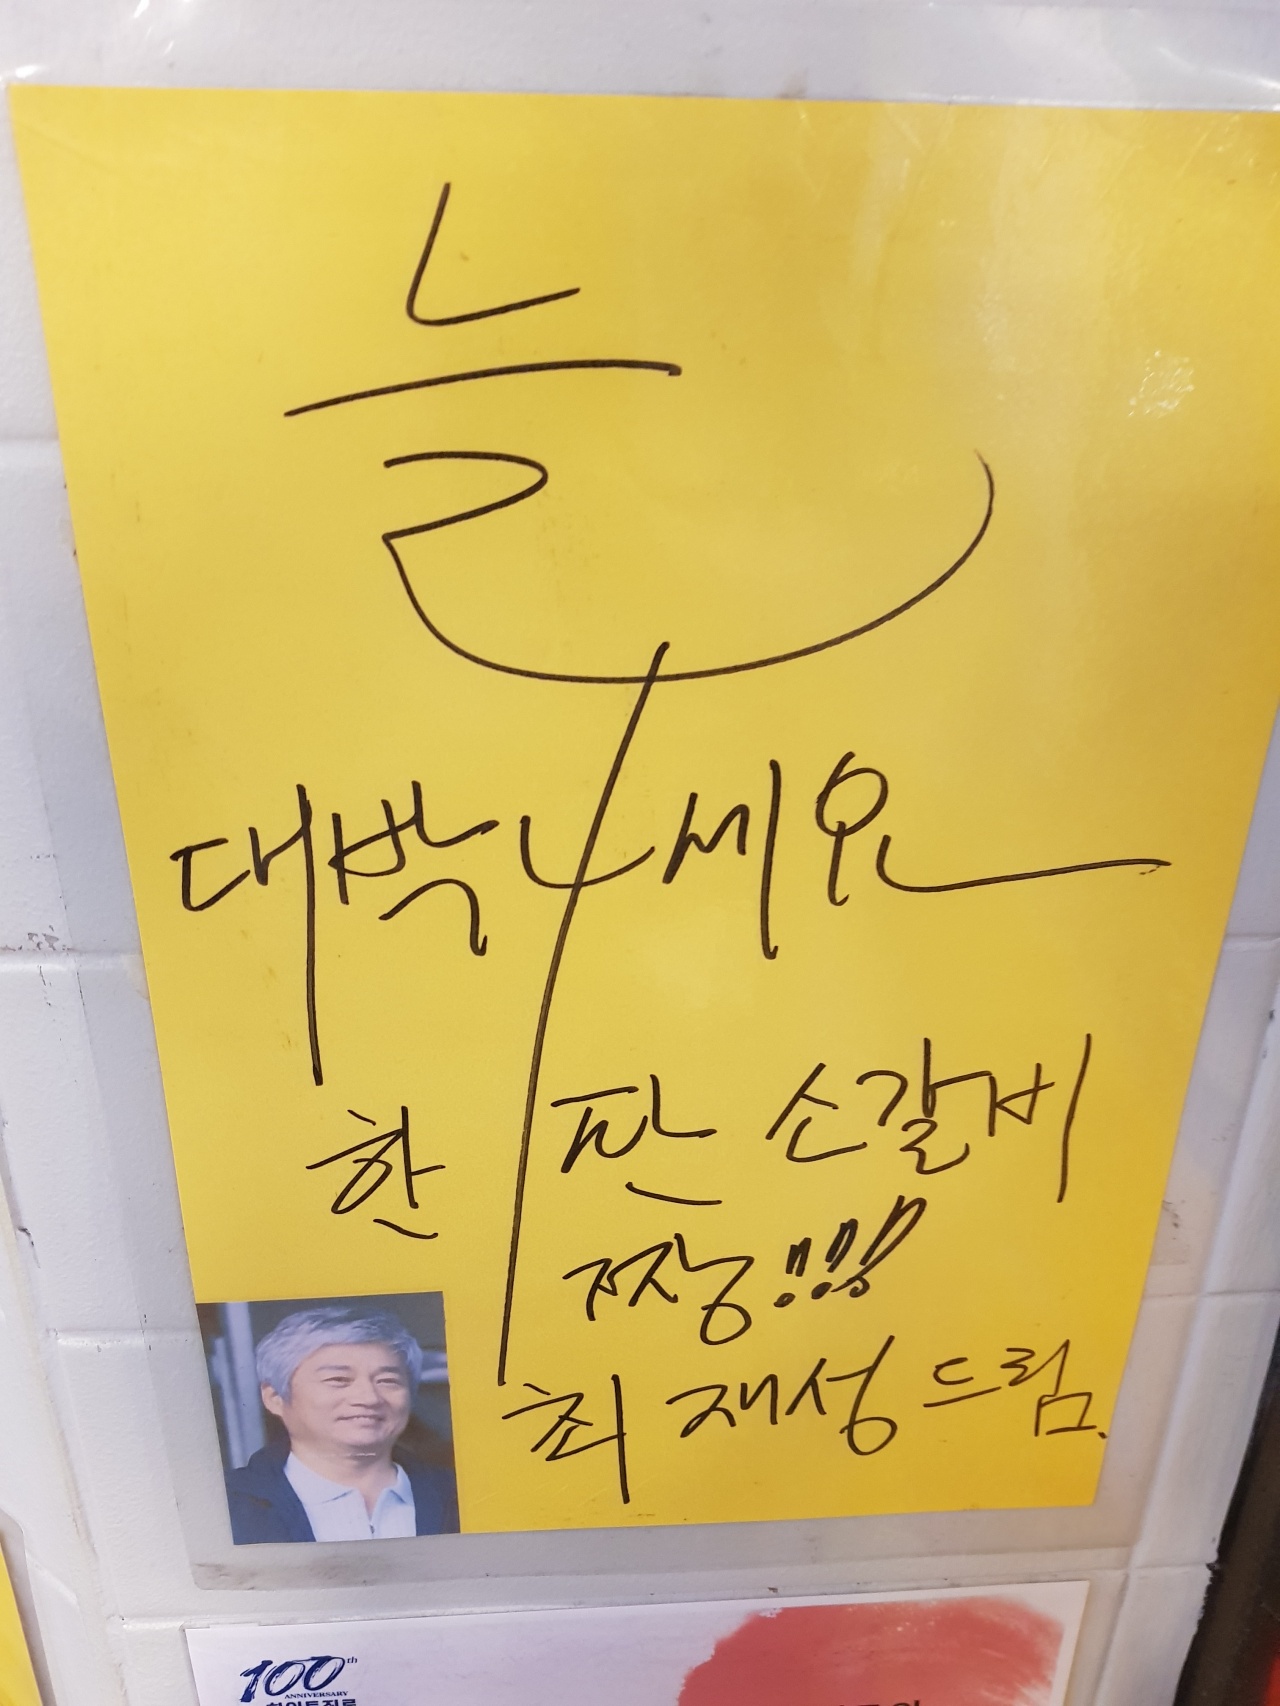 늘
대박나세요
한판 소갈비
짱!!!
최재성 드림.
100th
ANNIVERSARY
하이트진로